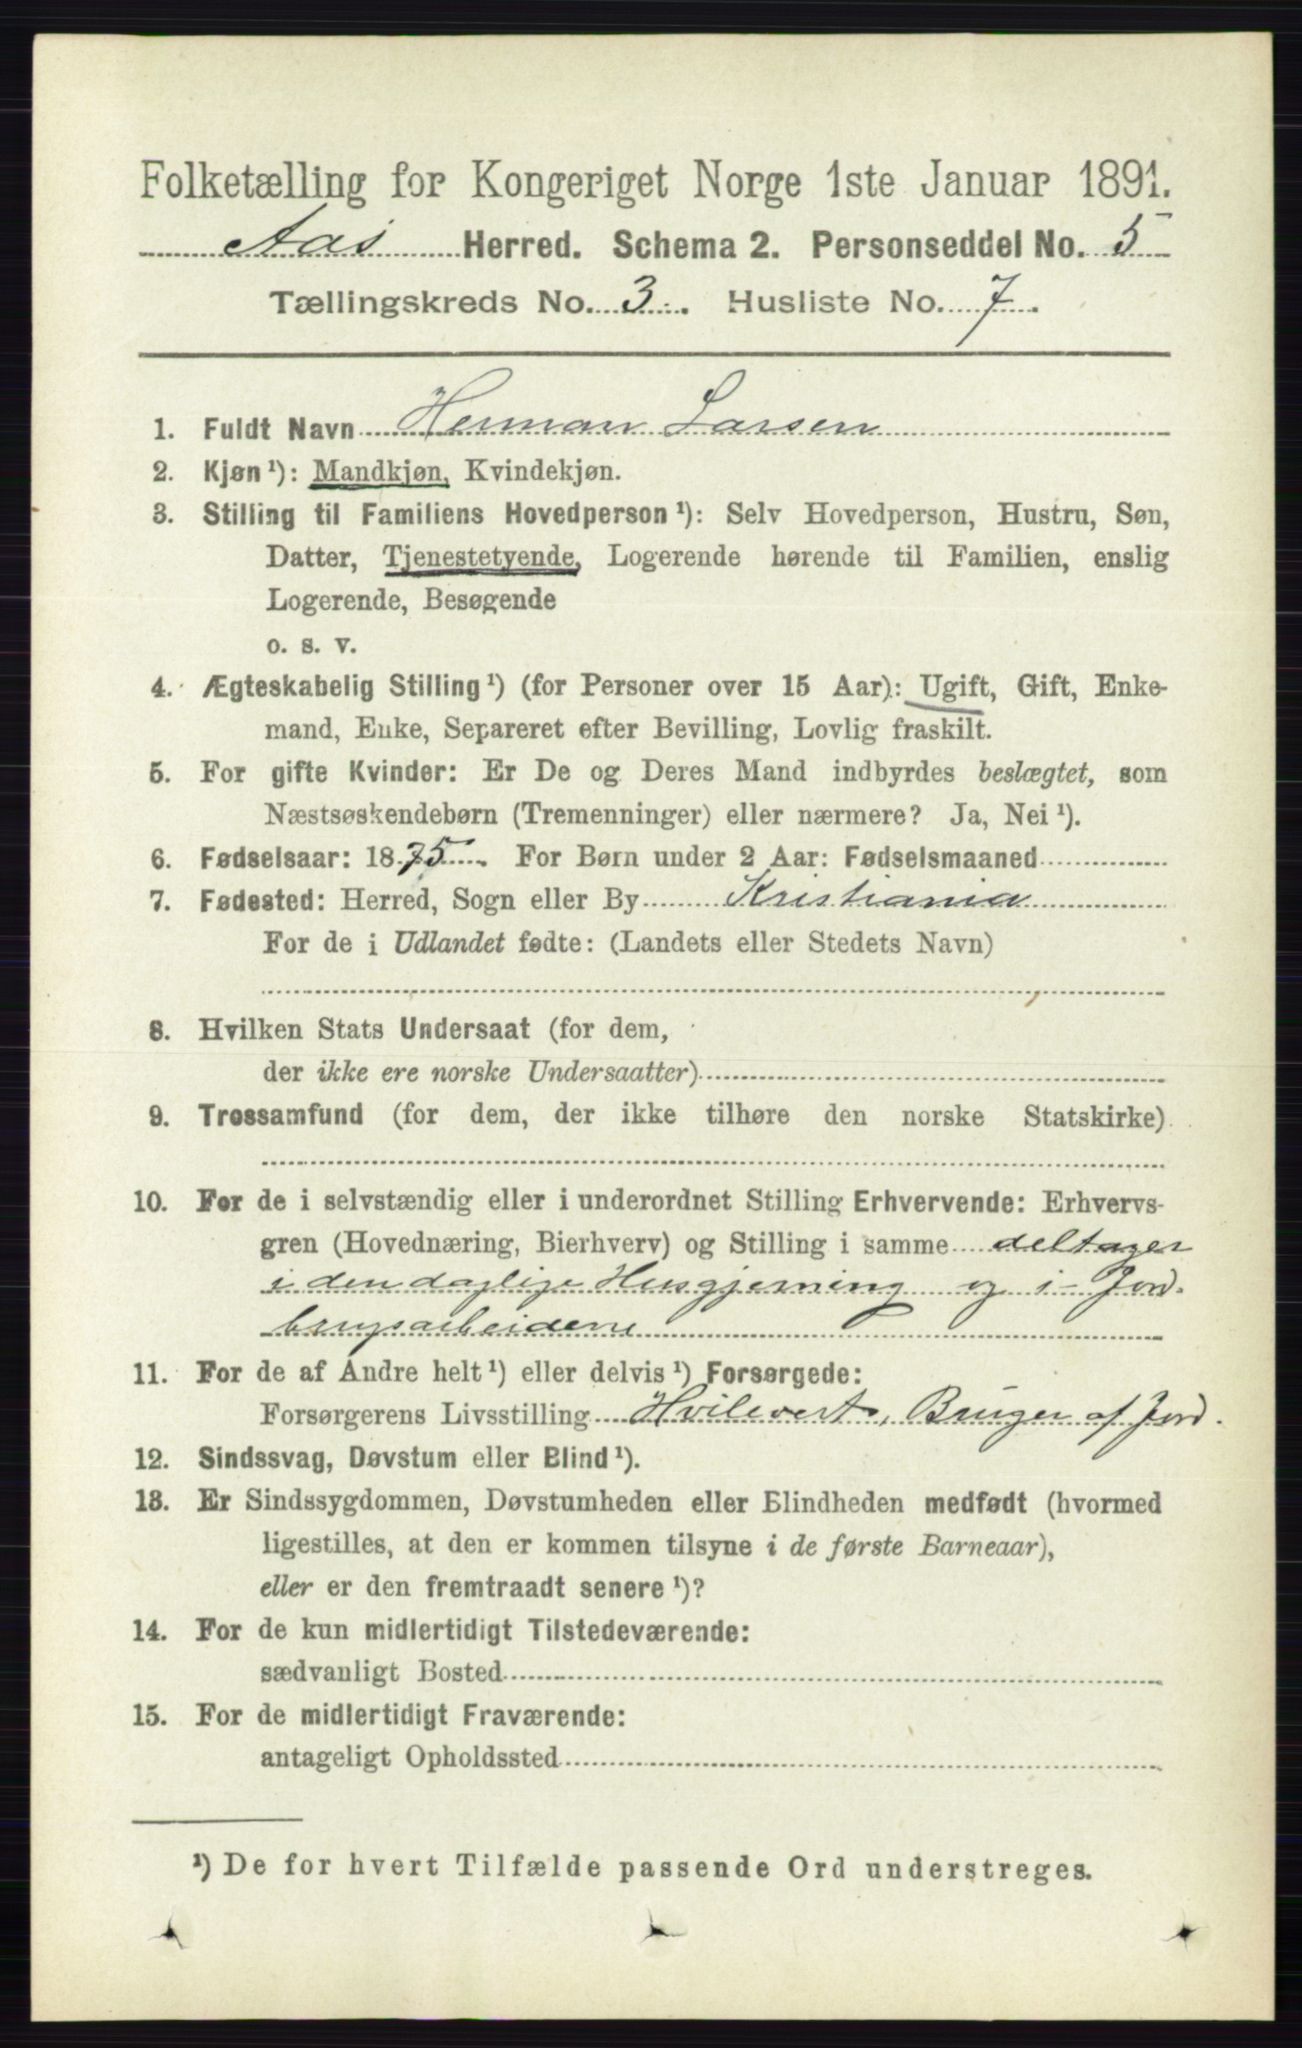 Folketælling for Kongeriget Norge 1ste Januar 1891.
Aas Herred. Schema 2. Personseddel No. 5
Tællingskreds No. 3. Husliste No. 7.
1. Fuldt Navn Herman Larsen
2. Kjøn ¹): Mandkjøn, Kvindekjøn.
3. Stilling til Familiens Hovedperson ¹): Selv Hovedperson, Hustru, Søn,
Datter, Tjenestetyende, Logerende hørende til Familien, enslig
Logerende, Besøgende
o. s. v.
4. Ægteskabelig Stilling ¹) (for Personer over 15 Aar): Ugift, Gift, Enke-
mand, Enke, Separeret efter Bevilling, Lovlig fraskilt.
5. For gifte Kvinder: Er De og Deres Mand indbyrdes beslægtet, som
Næstsøskendebørn (Tremenninger) eller nærmere? Ja, Nei ¹).
6. Fødselsaar: 1875. For Børn under 2 Aar: Fødselsmaaned
7. Fødested: Herred, Sogn eller By Kristiania
For de i Udlandet fødte: (Landets eller Stedets Navn)
8. Hvilken Stats Undersaat (for dem,
der ikke ere norske Undersaatter)
9. Trossamfund (for dem, der ikke tilhøre den norske Statskirke)
10. For de i selvstændig eller i underordnet Stilling Erhvervende: Erhvervs-
gren (Hovednæring, Bierhverv) og Stilling i samme deltager
i den daglige Husgjerning og i Jord-
brugsarbeiderne
11. For de af Andre helt ¹) eller delvis ¹) Forsørgede:
Forsørgerens Livsstilling Hvilevert, Bruger af Jord.
12. Sindssvag, Døvstum eller Blind ¹).
13. Er Sindssygdommen, Døvstumheden eller Blindheden medfødt (hvormed
ligestilles, at den er kommen tilsyne i de første Barneaar),
eller er den fremtraadt senere ¹)?
14. For de kun midlertidigt Tilstedeværende:
sædvanligt Bosted
15. For de midlertidigt Fraværende:
antageligt Opholdssted
¹) De for hvert Tilfælde passende Ord understreges.